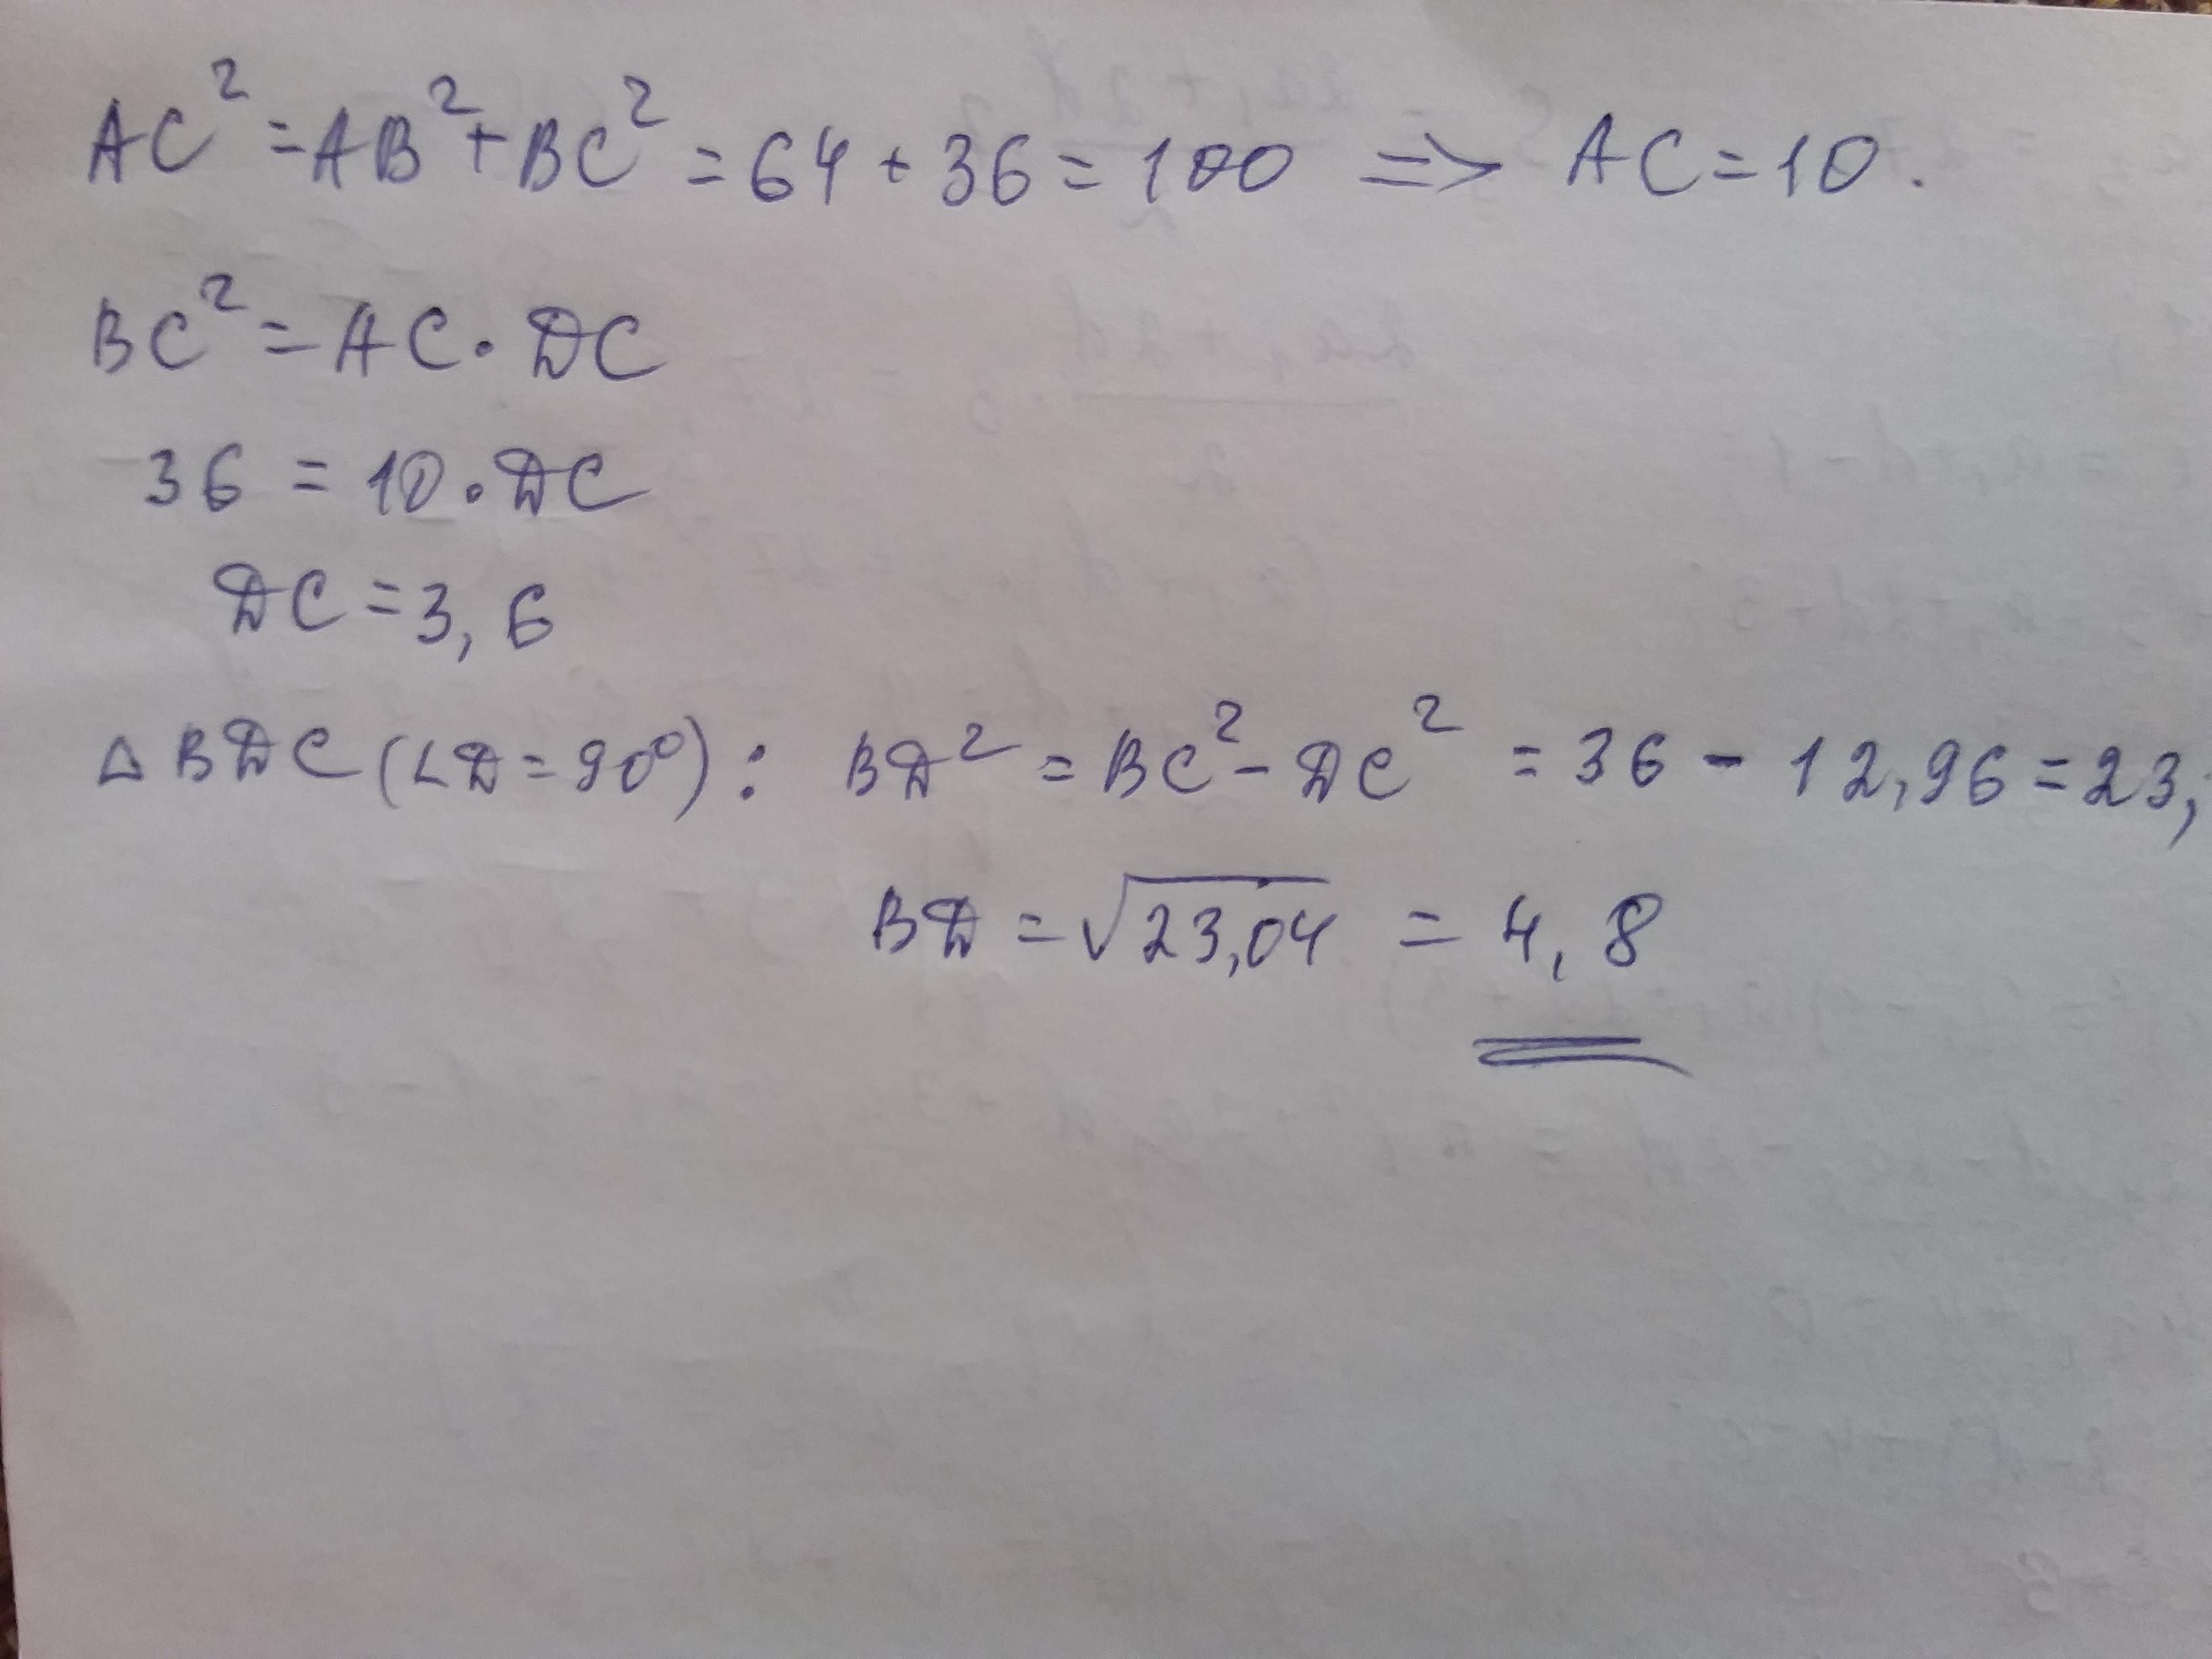 AC² = AB² + BC² = 64 + 36 = 100 => AC = 10.
BC² = AC · DC
36 = 10 · DC
DC = 3,6
△ BDC (∠D = 90°) : BD² = BC² - DC² = 36 - 12,96 = 23,
BD = √23,04 = 4,8